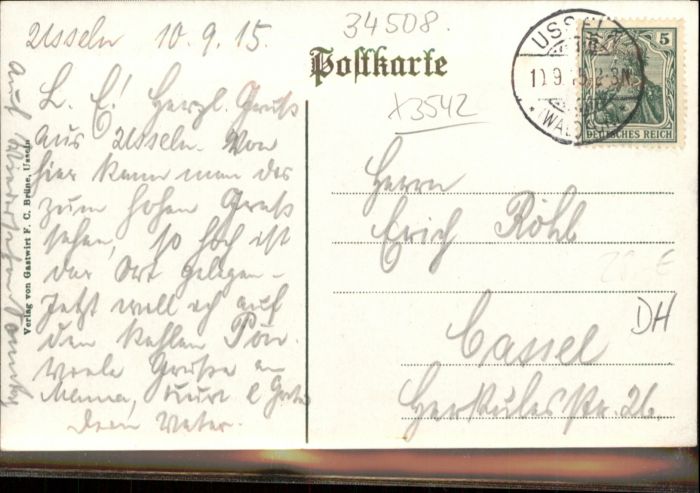 Usseln 10.9.15.
L. E! Herzl. Gruß
aus Usseln. Von
hier kann man bis
zum hohen Gras
sehen, so hoch ist
der Ort gelegen.
Jetzt will ich auf
den Kahlen Pön.
Viele Grüße an
Mama, Kurt &
Dein Vater.
auf Wiedersehen Sonntag
Verlag von Gastwirt F. C. Brüne, Usseln
34508.
Postkarte
x3542
USSELN
10.9.15. 2-3N.
(WALDECK)
5
DEUTSCHES REICH
Herrn
Erich Röhl
Cassel
Herkulesstr. 26.
20.-€
DH